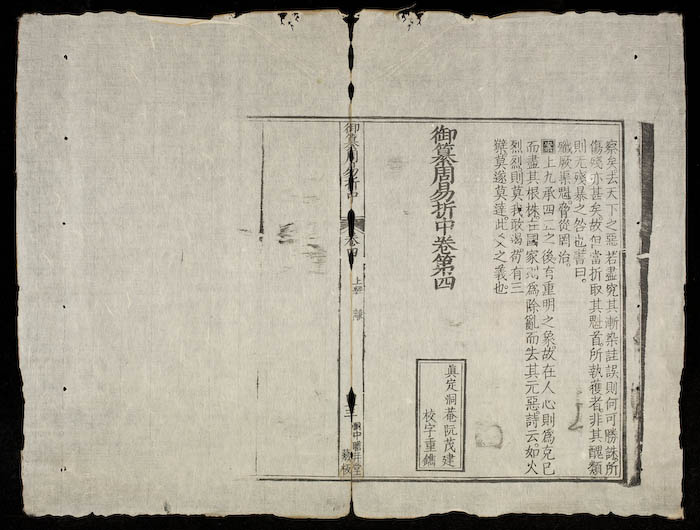 察矣去天下之惡若盡究其漸染註誤則何可勝誅所
傷殘亦甚矣故但當折取其魁首所執獲者非其醜類
則无殘暴之咎也書曰
殲厥渠魁脅從罔治
案上九承四五之後有重明之象故在人心則爲克己
而盡其根株在國家則爲除亂而去其元惡詩云如火
烈烈則莫我敢曷苟有三
蘖莫遂莫達此爻之義也
御纂周易折中卷第四
眞定洞菴阮茂建
校字重鐫
御纂周易折中
卷四
上經